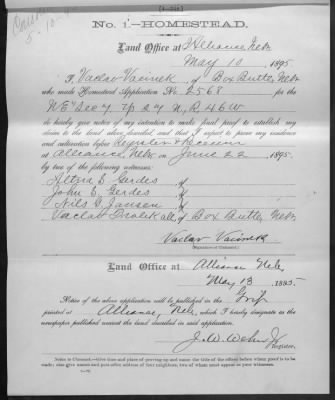 (4-348)
No. 1.—HOMESTEAD.
Land Office at Alliance Neb.
May 10, 1895.
I, Vaclav Vacinek, of Box Butte, Neb.
who made Homestead Application No. 2568 for the
NE Sec 7 Tp 27 N, R 46 W
do hereby give notice of my intention to make final proof to establish my
claim to the land above described, and that I expect to prove my residence
and cultivation before Register & Receiver
at Alliance, Neb. on June 22, 1895,
by two of the following witnesses:
E Gerdes of
John E. Gerdes of
Nils Jansen of
Vaclav of Box Butte, Neb.
Vaclav Vacinek
(Signature of Claimant.)
Land Office at Alliance Neb,
May 13, 1895.
Notice of the above application will be published in the Grip
printed at Alliance, Neb, which I hereby designate as the
newspaper published nearest the land described in said application.
J. W. Wehn Jr
Register.
Note to Claimant.—Give time and place of proving up and name the title of the officer before whom proof is to be
made; also give names and post-office address of four neighbors, two of whom must appear as your witnesses.